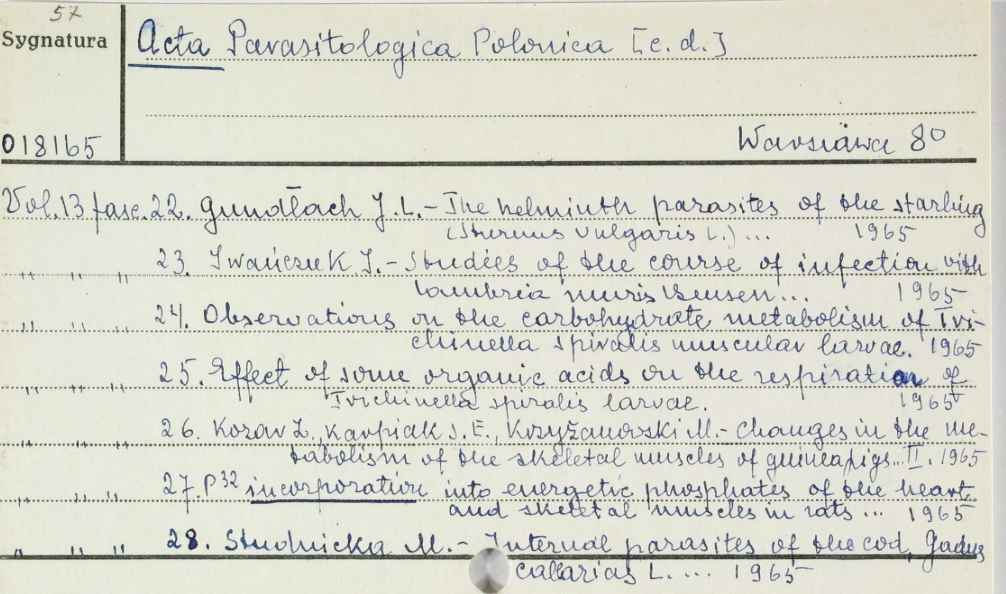 57
Sygnatura
Acta Parasitologica Polonica [c.d.]
018165
Warszawa 80
Vol. 13 fasc. 22. Gundłach J.L. - The helminth parasites of the starling
(Sturnus vulgaris L.) ... 1965
" " " 23. Iwańczuk I. - Studies of the course of infection with
muris ... 1965
" " " 24. Observations on the carbohydrate metabolism of Tri-
chinella spiralis muscular larvae. 1965
" " " 25. Effect of some organic acids on the respiration of
Trichinella spiralis larvae. 1965
" " " 26. Kozar Z., Karpiak S.E., Krzyżanowski M. - Changes in the me-
tabolism of the skeletal muscles of guineapigs... II. 1965
" " " 27. P32 incorporation into energetic phosphates of the heart
and skeletal muscles in rats ... 1965
" " " 28. Studnicka M. - Internal parasites of the cod, Gadus
callarias L. ... 1965